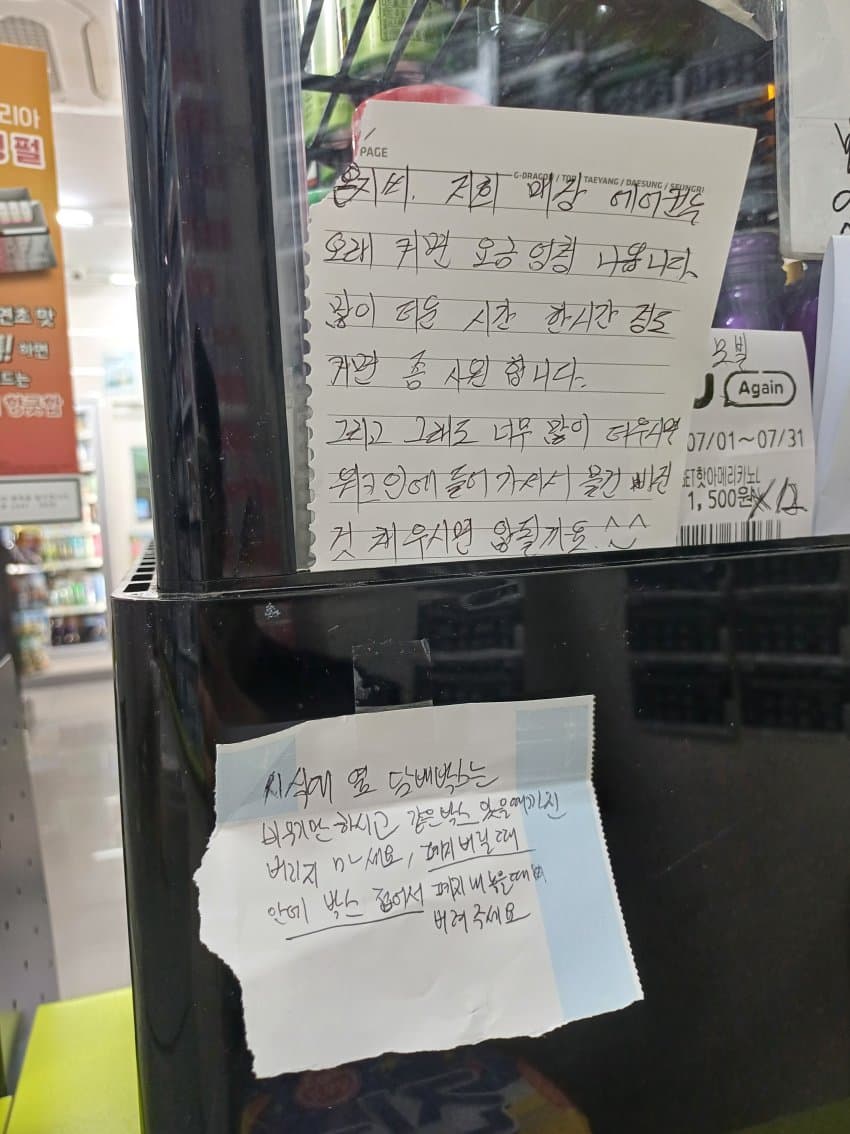 리아
펄
연초 맛
하면
드는
향긋함
PAGE
G-DRAGON / TOP / TAEYANG / DAESUNG / SEUNGRI
저희 매장 에어컨두
오래 켜면 요금 엄청 나옵니다.
많이 더운 시간 한시간 정도
켜면 좀 시원 합니다.
그리고 그래도 너무 많이 더우시면
워크인에 들어가셔서 물건 빠진
것 채우시면 안될까요. ^^
모빌
U Again
07/01~07/31
GET핫아메리카노L
1,500원
시식대 옆 담배박스는
비우지만 하시고 같은박스 있을때까진
버리지 마세요, 폐지버릴때
안에 박스 접어서 폐지 내놓을때
버려주세요